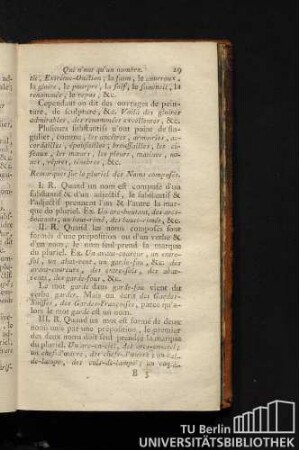 Qui n'ont qu'un nombre. 29
Extrême-Onction; la faim, le couroux,
la gloire, le pourpre, la soif, le sommeil, la
renommée, le repos, &c.
Cependant on dit des ouvrages de pein-
ture, de sculpture, &c. Voilà des gloires
admirables, des renommées excellentes, &c.
Plusieurs substantifs n'ont point de sin-
gulier, comme, les ancêtres, armoiries, ac-
cordailles, épousailles; broussailles, les ci-
seaux, les mœurs, les pleurs, matines, nones,
vêpres, ténèbres, &c.
Remarques sur le pluriel des Noms composés.
I. R. Quand un nom est composé d'un
substantif & d'un adjectif, le substantif &
l'adjectif prennent l'un & l'autre la mar-
que du pluriel. Ex. Un arc-boutant, des arcs-
boutants; un bout-rimé, des bouts-rimés, &c.
II. R. Quand les noms composés sont
formés d'une préposition ou d'un verbe &
d'un nom, le nom seul prend la marque
du pluriel. Ex. Un avant-coureur, un entre-
sol, un abat-vent, un garde-fou, &c. des
avant-coureurs, des entre-sols, des abat-
vents, des garde-fous, &c.
Le mot garde dans garde-fou vient du
verbe garder. Mais on écrit des Gardes-
Suisses, des Gardes-Françoises, parce qu'a-
lors le mot garde est un nom.
III. R. Quand un mot est formé de deux
noms unis par une préposition, le premier
des deux noms doit seul prendre la marque
du pluriel. Un arc-en-ciel, des arcs-en-ciel;
un chef-d'œuvre, des chefs-d'œuvre; un cul-
de-lampe, des culs-de-lampe; un coq-à-
B 3
TU Berlin
UNIVERSITÄTSBIBLIOTHEK